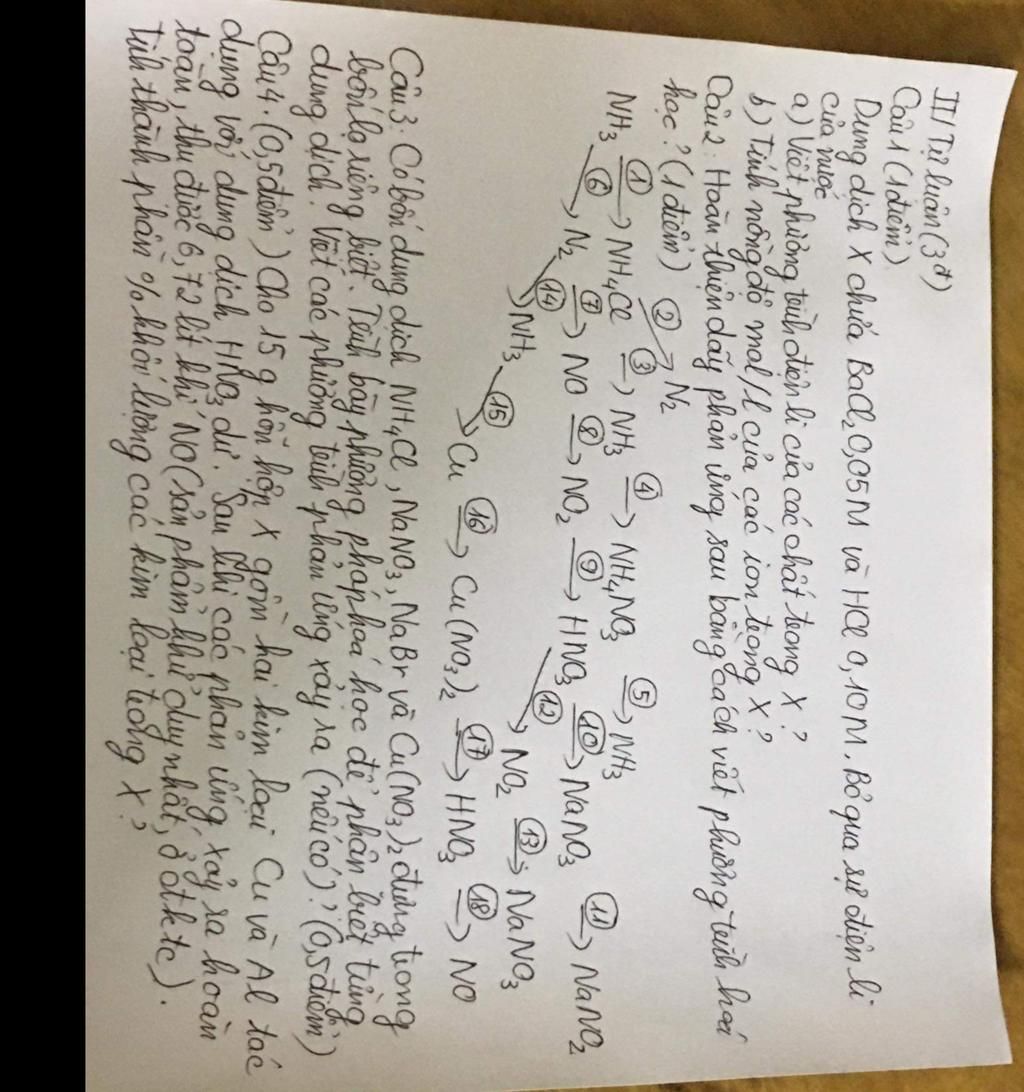 II/ Tự luận (3đ)
Câu 1 (1 điểm)
Dung dịch X chứa BaCl2 0,05M và HCl 0,10M. Bỏ qua sự điện li
của nước
a) Viết phương trình điện li của các chất trong X?
b) Tính nồng độ mol/l của các ion trong X?
Câu 2: Hoàn thiện dãy phản ứng sau bằng cách viết phương trình hoá
học? (1 điểm)
② → N2
NH3 —①→ NH4Cl —③→ NH3 —④→ NH4NO3 —⑤→ NH3
⑥ → N2 —⑦→ NO —⑧→ NO2 —⑨→ HNO3 —⑩→ NaNO3 —⑪→ NaNO2
⑭ → NH3 ⑫ → NO2 —⑬→ NaNO3
⑮ → Cu —⑯→ Cu(NO3)2 —⑰→ HNO3 —⑱→ NO
Câu 3: Có bốn dung dịch NH4Cl, NaNO3, NaBr và Cu(NO3)2 đựng trong
bốn lọ riêng biệt. Trình bày phương pháp hoá học để phân biệt từng
dung dịch. Viết các phương trình phản ứng xảy ra (nếu có)? (0,5 điểm)
Câu 4. (0,5 điểm) Cho 15 g hỗn hợp X gồm hai kim loại Cu và Al tác
dụng với dung dịch HNO3 dư. Sau khi các phản ứng xảy ra hoàn
toàn, thu được 6,72 lít khí NO (sản phẩm khử duy nhất, ở đktc).
Tính thành phần % khối lượng các kim loại trong X?